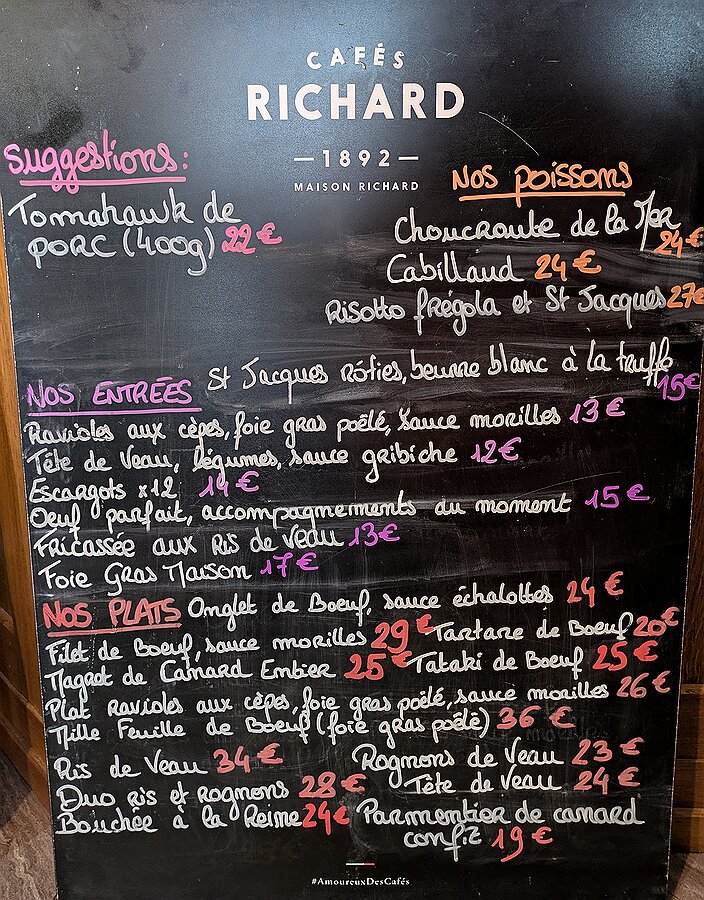 CAFÉS
RICHARD
— 1892 —
MAISON RICHARD
Suggestions:
Tomahawk de
porc (400g) 22€
Nos poissons
Choucroute de la Mer
24€
Cabillaud 24€
Risotto frégola et St Jacques 27€
NOS ENTRÉES St Jacques rôties, beurre blanc à la truffe
15€
Ravioles aux cèpes, foie gras poêlé, sauce morilles 13€
Tête de Veau, légumes, sauce gribiche 12€
Escargots x12 14€
Oeuf parfait, accompagnements du moment 15€
Fricassée aux Ris de Veau 13€
Foie Gras Maison 17€
NOS PLATS Onglet de Boeuf, sauce échalottes 24€
Filet de Boeuf, sauce morilles 29€ Tartare de Boeuf 20€
Magret de Canard Entier 25€ Tataki de Boeuf 25€
Plat Ravioles aux cèpes, foie gras poêlé, sauce morilles 26€
Mille Feuille de Boeuf (foie gras poêlé) 36€
Ris de Veau 34€ Rognons de Veau 23€
Duo ris et rognons 28€ Tête de Veau 24€
Bouchée à la Reine 24€ Parmentier de canard
confit 19€
#AmoureuxDesCafés